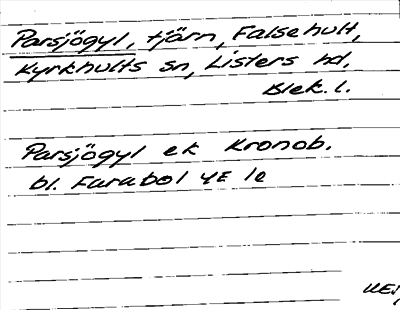 Parsjögyl, tjärn, Falsehult,
Kyrkhults sn, Listers hd,
Blek. l.
Parsjögyl ek Kronob.
bl. Farabol 4E 1e